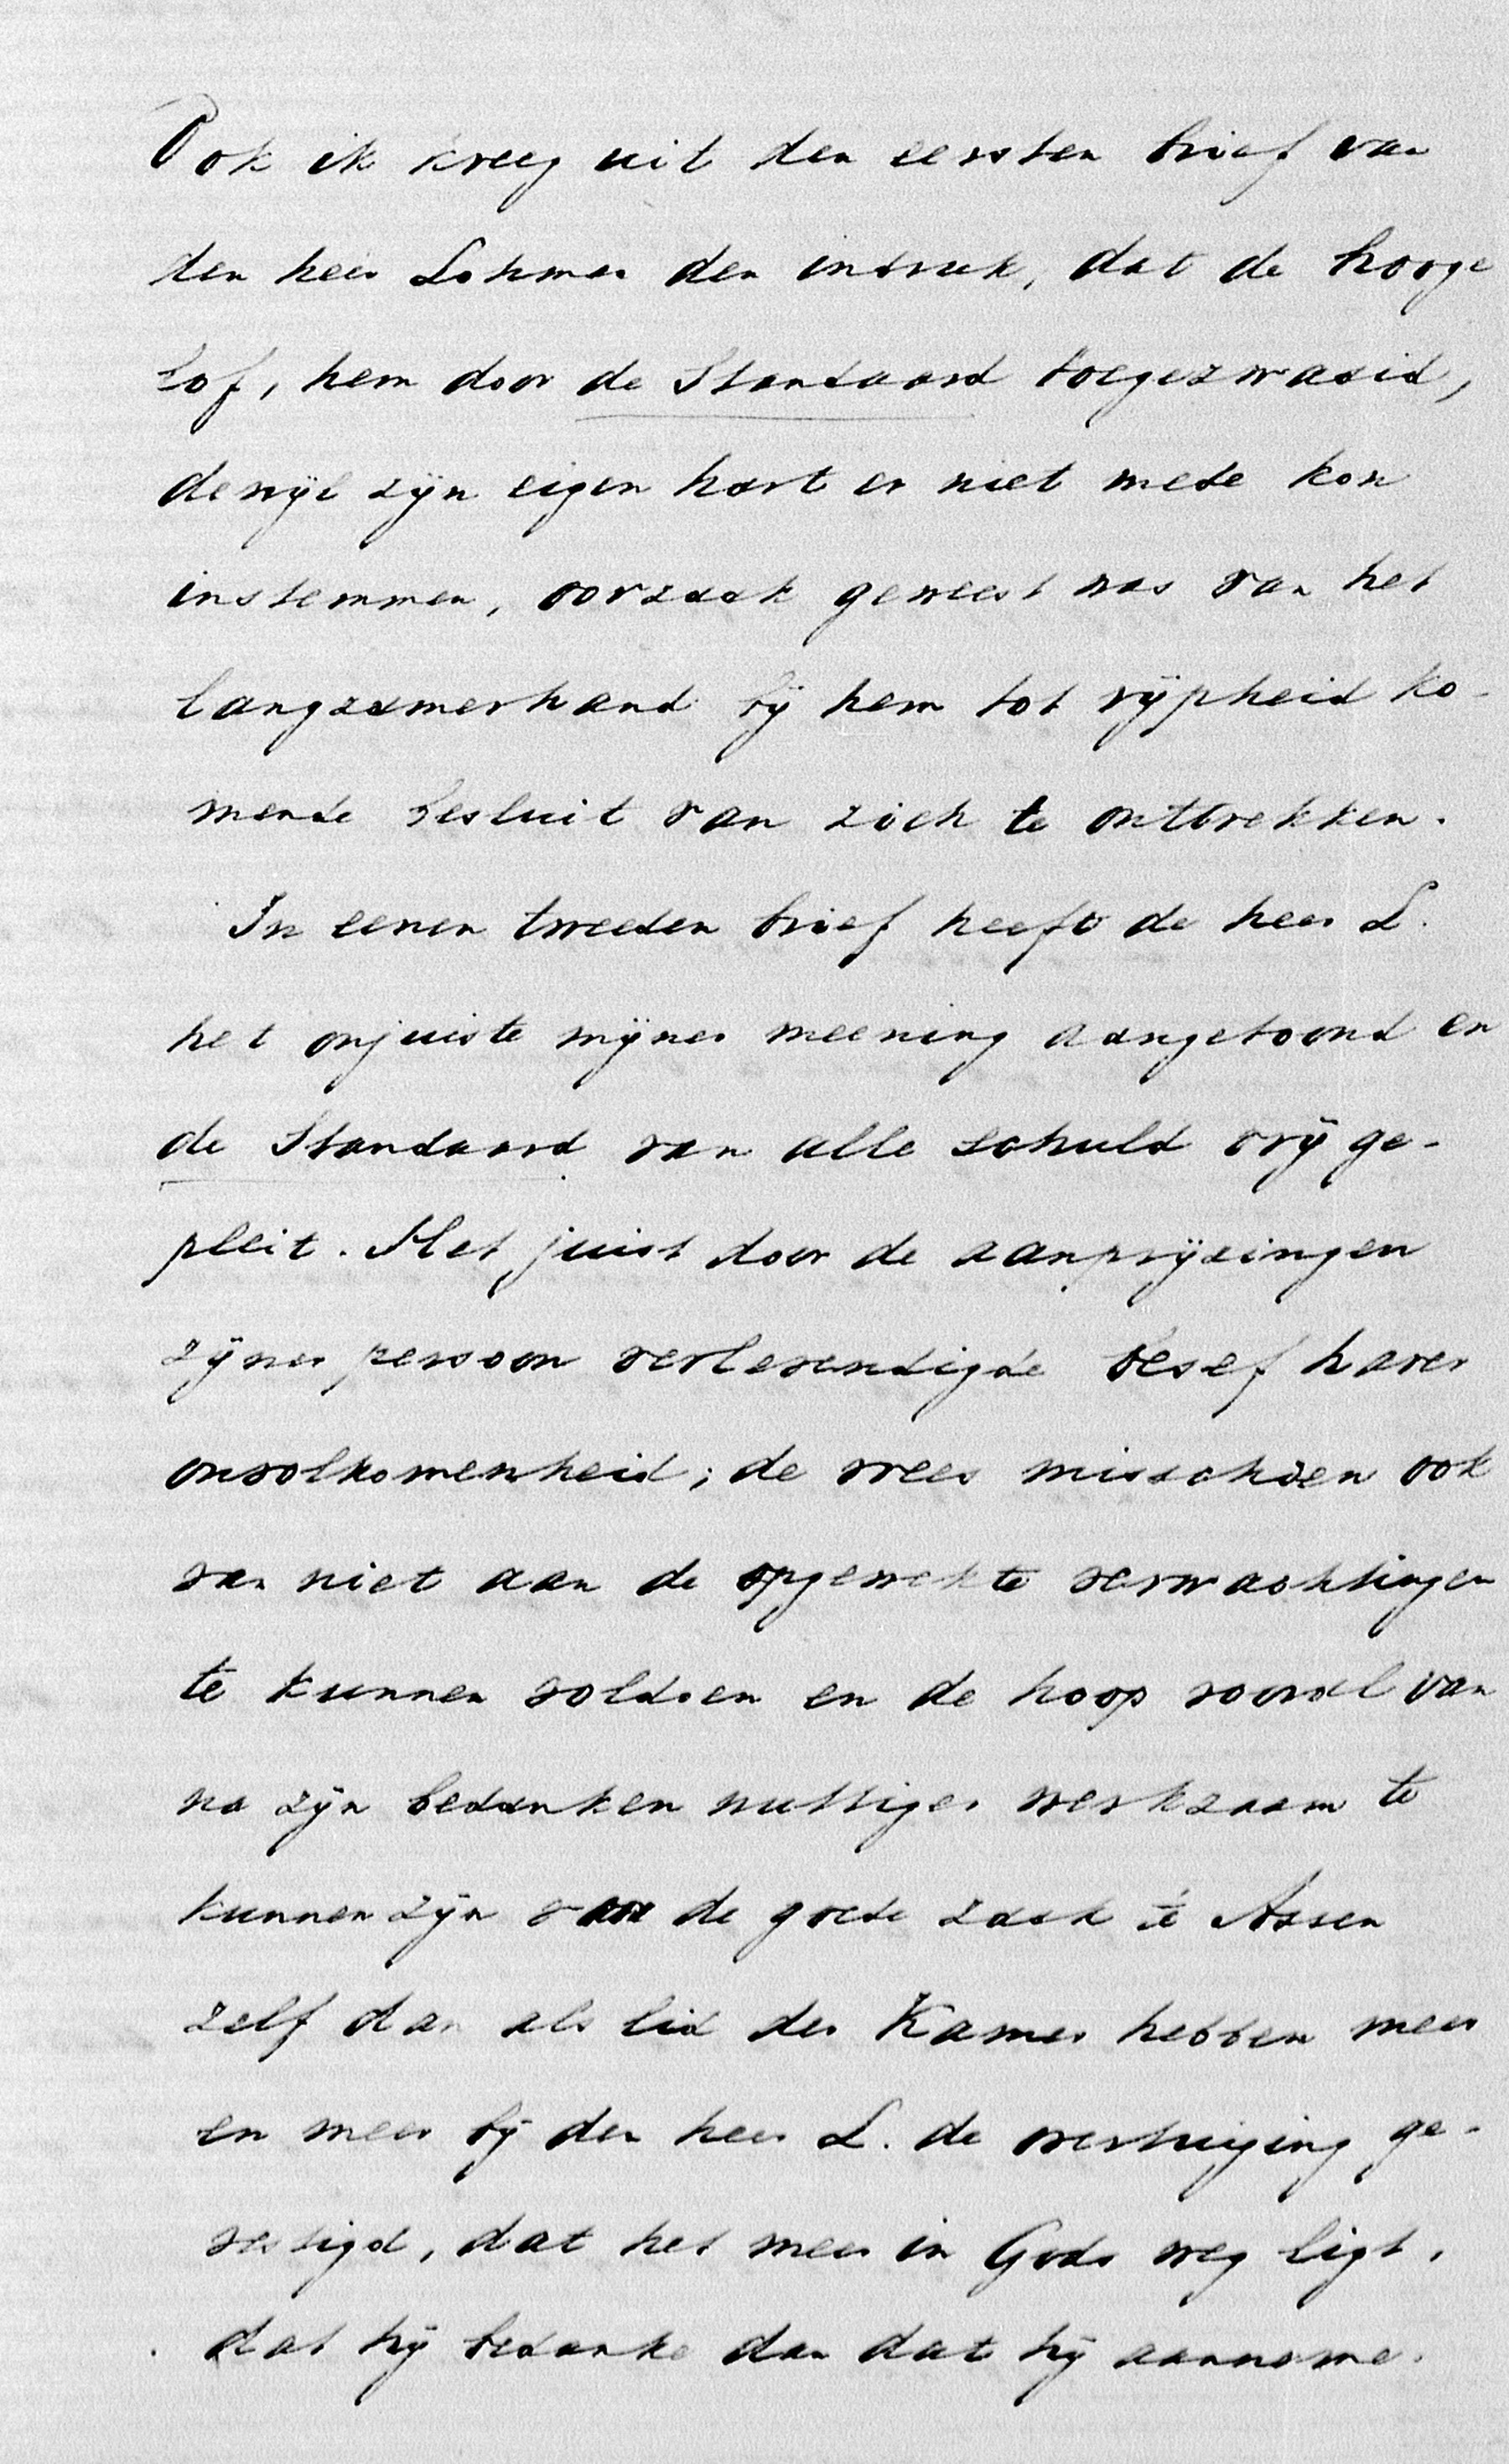 Ook ik kreeg uit den eersten brief van
den heer Lohman den indruk, dat de hooge
lof, hem door de Standaard toegezwaaid,
dewijl zijn eigen hart er niet mede kon
instemmen, oorzaak geweest was van het
langzamerhand bij hem tot rijpheid ko-
mende besluit van zich te onttrekken.
In eenen tweeden brief heeft de heer L.
het onjuiste mijner meening aangetoond en
de Standaard van alle schuld vrij ge-
pleit. Het juist door de aanprijzingen
zijner persoon verlevendigde besef harer
onvolkomenheid; de vrees misschien ook
van niet aan de opgewekte verwachtingen
te kunnen voldoen en de hoop vooral van
na zijn bedanken nuttiger werkzaam te
kunnen zijn voor de goede zaak te Assen
zelf dan als lid der Kamer hebben meer
en meer bij den heer L. de overtuiging ge-
vestigd, dat het meer in Gods weg ligt,
dat hij bedanke dan dat hij aanneme.